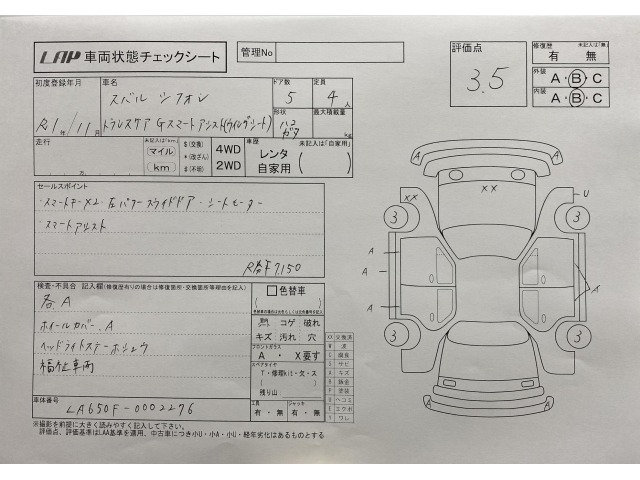 LAP 車両状態チェックシート
管理No
評価点
3.5
修復歴 未記入は「無」
有 無
外装 A・B・C
内装 A・B・C
初度登録年月
R1年/11月
車名
スバル シフォン
ドア数
5
定員
4人
形状
ハコ
最大積載量
kg
走行
未記入は「km」
(マイル)
(km)
$(交換)
*(改ざん)
#(不明)
4WD
2WD
車歴 未記入は「自家用」
レンタ
自家用
万
セールスポイント
・スマートキー×2・左パワースライドドア・シートヒーター
・スマートアシスト
R券¥7,150
検査・不具合 記入欄(修復歴有りの場合は修復箇所・交換箇所等理由を記入)
各A
ホイールカバーA
福祉車両
色替車
室内シート コゲ 破れ
キズ 汚れ 穴
フロントガラス
A ・ X要す
スペアタイヤ
T・修理kit・欠・ス
残り山
工具
有・無
ジャッキ
有・無
XX 交換済
W 波
C 腐食
S サビ
A キズ
B 鈑金
P 塗装
U ヘコミ
E エクボ
Y ワレ
車体番号
LA650F-0002276
※撮影を前提に大きく読みやすく記入して下さい。
評価点、評価基準はLAA基準を適用、中古車につき小U・小A・小U・経年劣化はあるものとする
A
A
XX
XX
U
3
3
A
A
A
A
3
3
A
A